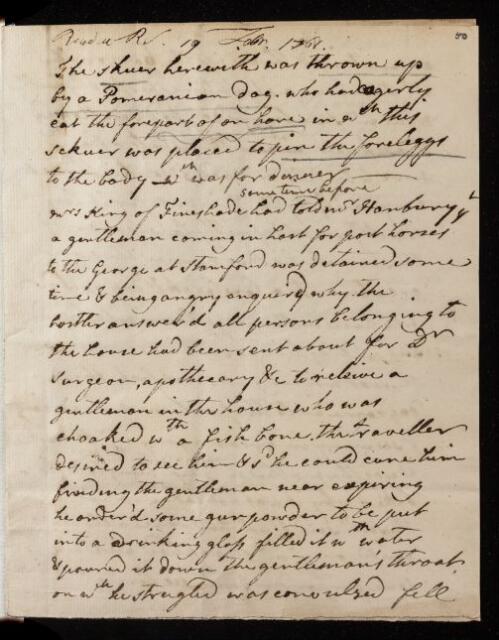 Read at R.S. 19 Feb. 1761.
50
The skuer herewith was thrown up
by a Pomeranian dog. who had eagerly
eat the forepart of an hare in wth this
skuer was placed to join the foreleggs
to the body wth was for dinner
some time before
Mrs King of Fineshade had told Mr Hanbury yt
a gentleman coming in hast for post horses
to the George at Stamford was detained some
time & being angry enquer'd why the
hostler answer'd all persons belonging to
the house had been sent about for Dr
surgeon, apothecary &c to releive a
gentleman in the house who was
choaked wth a fish bone, the traveller
desired to see him & sd he could cure him
finding the gentleman near expiring
he order'd some gunpowder to be put
into a drinking glass filled it wth water
& poured it down the gentleman's throat.
on wth he strugled was convulzed fell